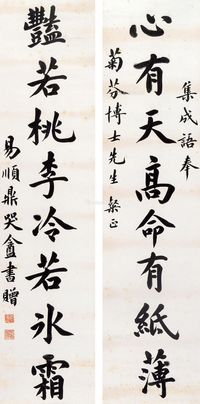 心有天高命有紙薄
集成語奉
菊芬博士先生粲正
豔若桃李冷若冰霜
易順鼎哭盦書贈